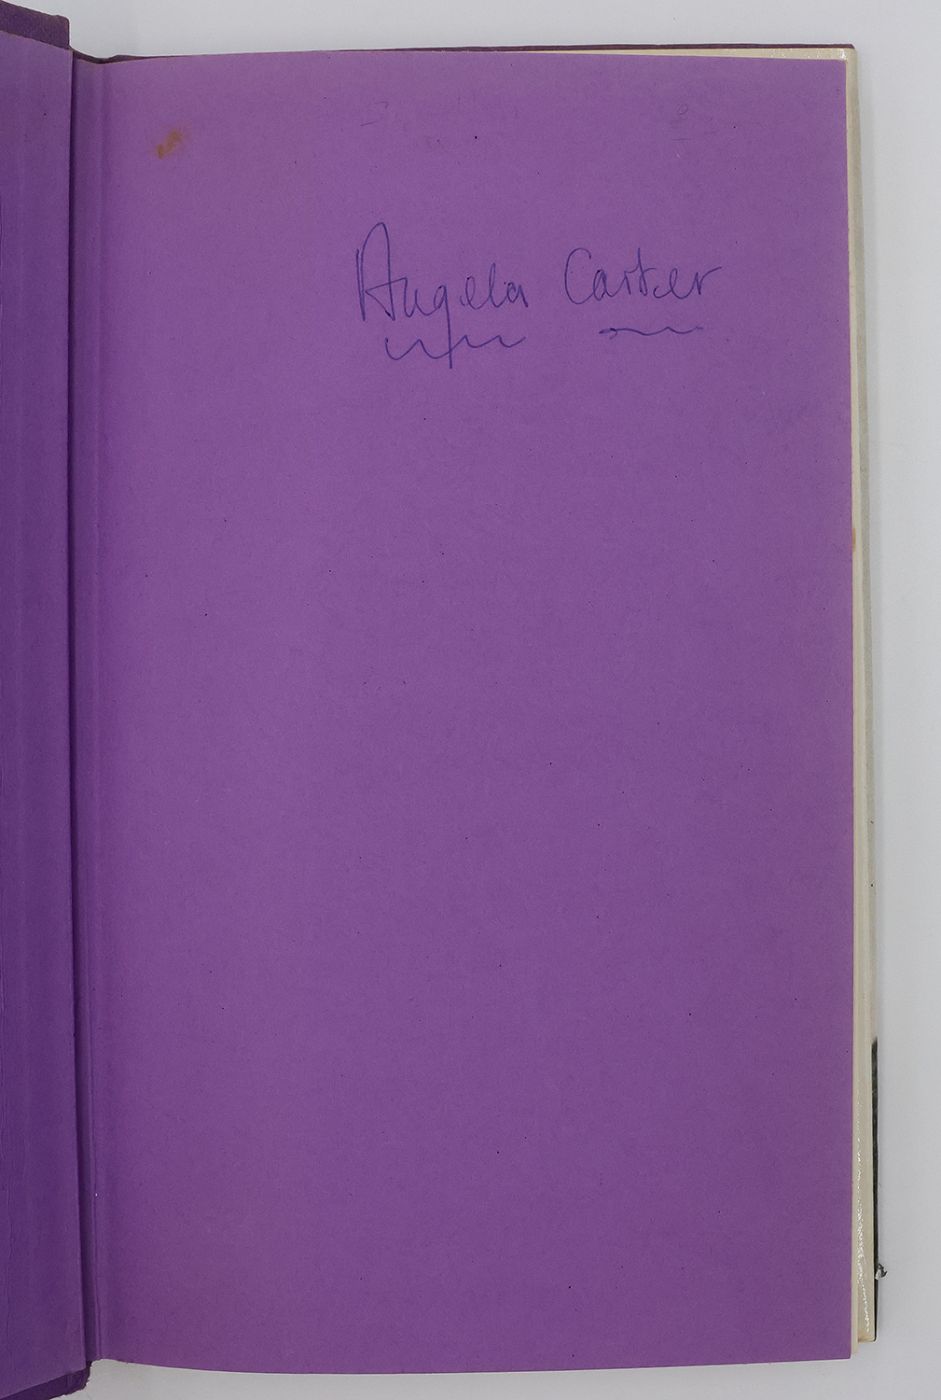 Angela Carter